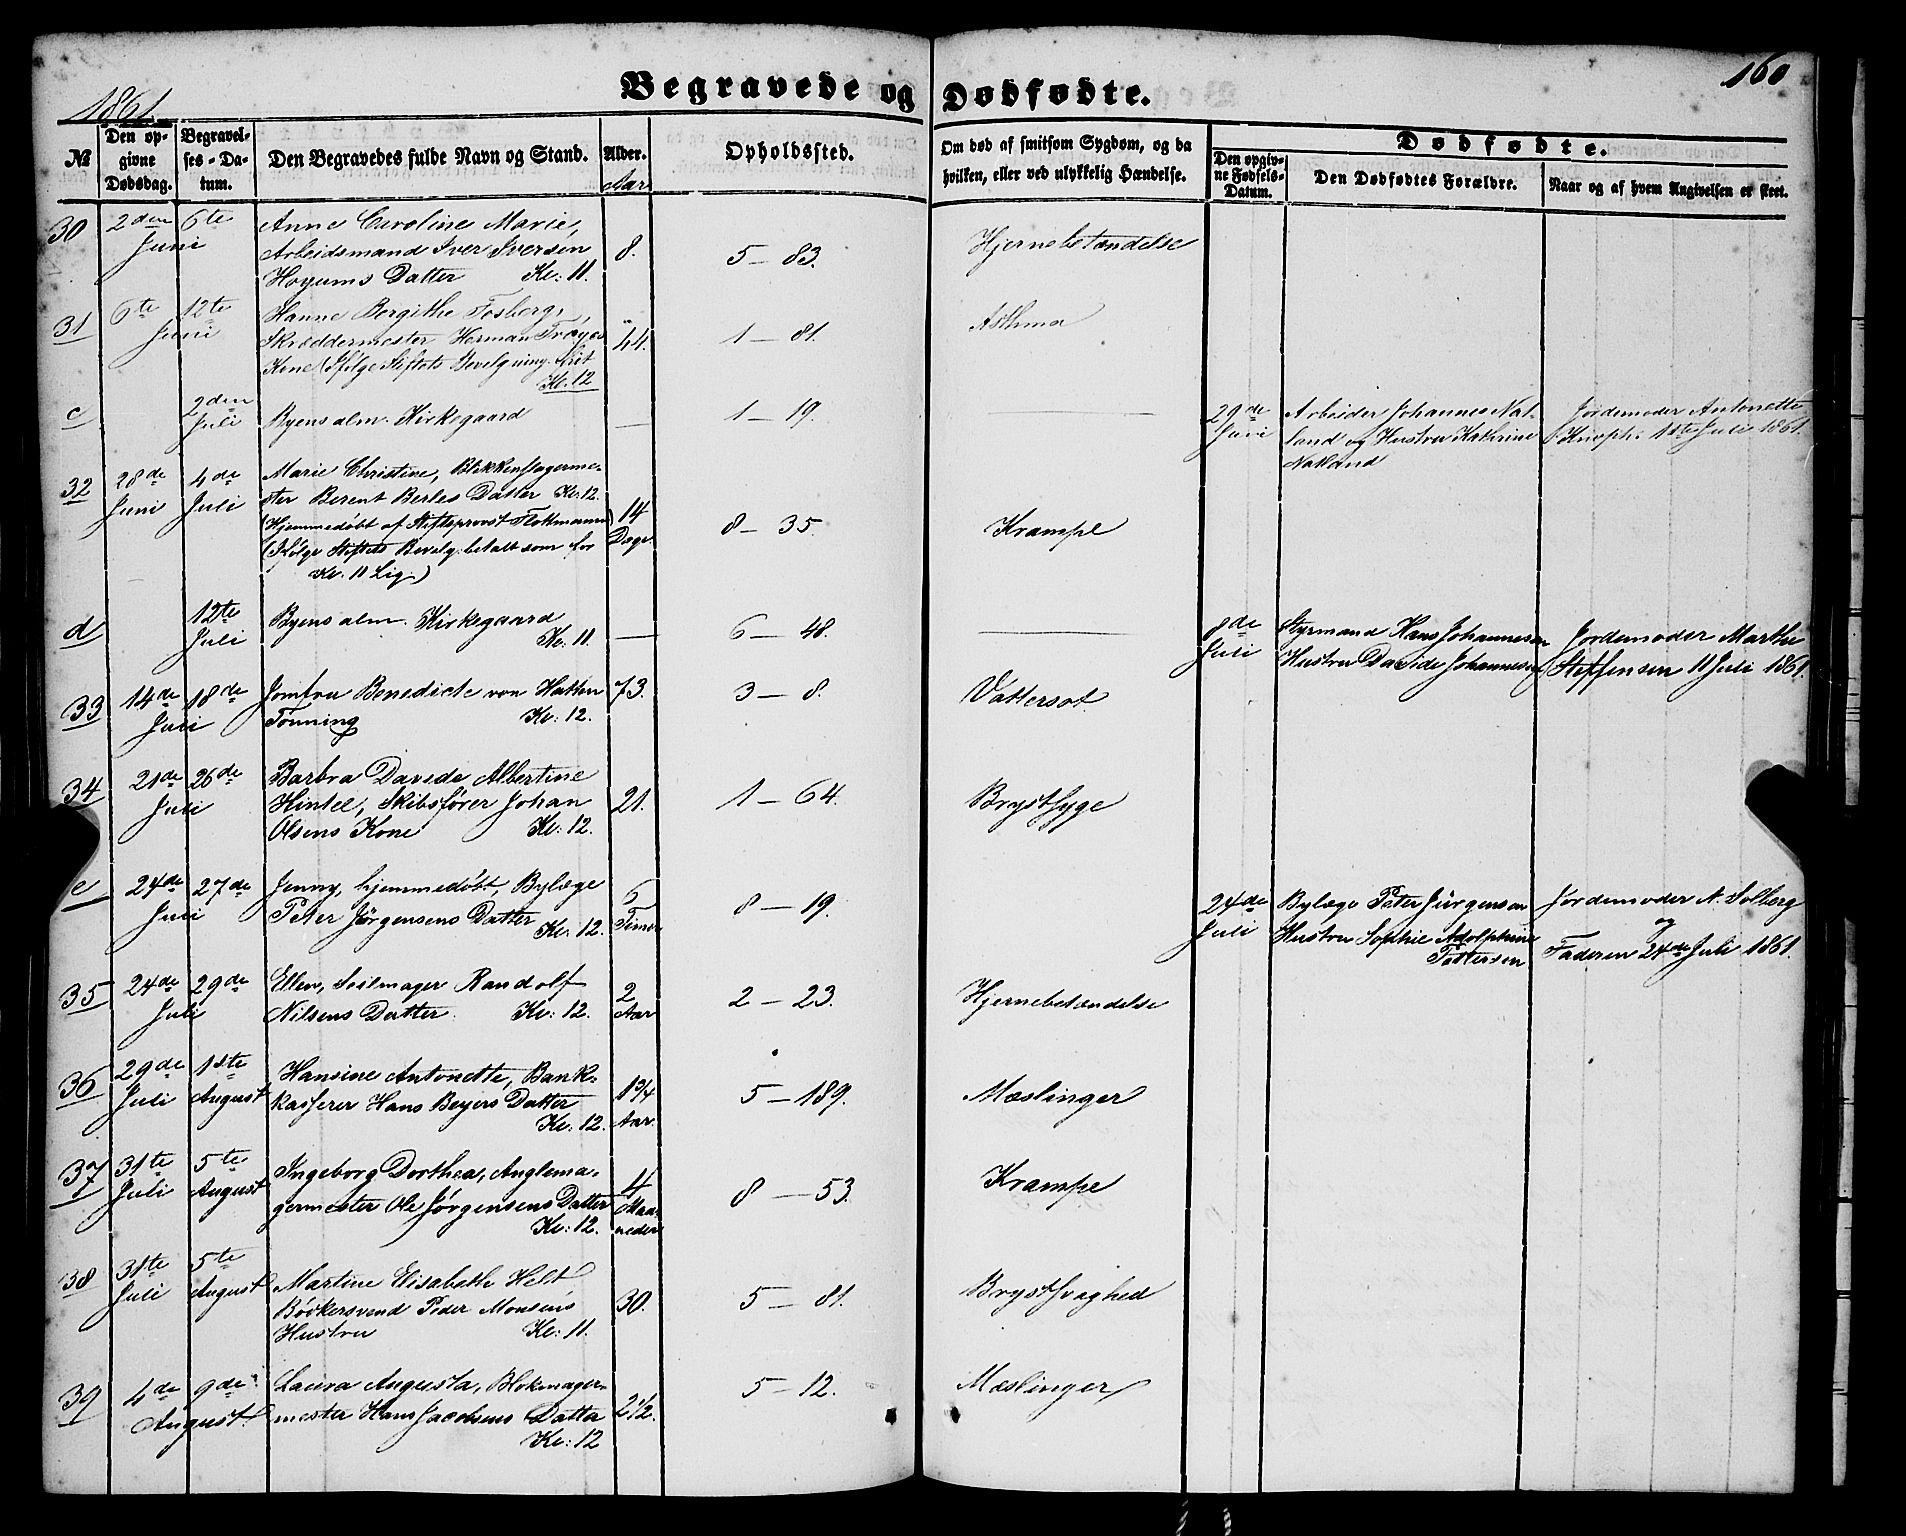 Begravede og Dødfødte.
160
1861.
№
Den opgivne Dødsdag.
Begravelses-Datum.
Den Begravedes fulde Navn og Stand.
Alder.
Aar
Opholdssted.
Om død af smitsom Sygdom, og da hvilken, eller ved ulykkelig Hændelse.
Dødfødte.
Den opgivne Fødsels-Datum.
Den Dødfødtes Forældre.
Naar og af hvem Angivelsen er skeet.
30 2den 6te Juni
Anne Caroline Marie,
Arbeidsmand Iver Iversen
Høyums Datter Kl: 11.
8.
5 – 83.
Hjernebetændelse
31 6te 12te Juni
Hanne Bergithe Fosberg,
Skræddermester Herman Trøyes
Kone (Ifølge Stiftets Bevilgning frit
Kl. 12
44.
1 – 81.
Asthma
c 2den Juli
Byens alm. Kirkegaard
—
1 – 19.
29de Juni
Arbeider Johannes Nat-
land og Hustru Kathrine
Natland
Jordemoder Antonette
Knoph. 1ste Juli 1861.
32 28de Juni 4de Juli
Marie Christine, Blikkenslagerme-
ster Berent Berles Datter Kl. 12.
(Hjemmedøbt af Stiftsprovst Flottmann)
(Ifølge Stiftets Bevilg: betalt som for
Kl. 11 Lig.)
14 Dage
8 – 35.
Krampe
d 12te Juli
Byens alm. Kirkegaard
Kl. 11
—
6 – 48.
8de Juli
Styrmand Hans Johannesen
Hustru Davide Johannesen
Jordemoder Marthe
Steffensen 11 Juli 1861.
33 14de 18de Juli
Jomfru Benedicte von Hatten
Tønning Kl: 12.
73.
3 – 8.
Vattersot
34 21de 26de Juli
Barbra Davida Albertine
Hintze, Skibsfører Johan
Olsens Kone Kl: 12.
21.
1 – 64.
Brystsyge
e 24de 27de Juli
Jenny, hjemmedøbt, Bylæge
Peter Jørgensens Datter Kl. 12.
6 Timer
8 – 19.
24de Juli
Bylæge Peter Jürgensen
Hustru Sophie Adolphine
Pettersen
Jordemoder N. Solberg
og
Faderen 24de Juli 1861.
35 24de 29de Juli
Ellen, Seilmager Randolf
Nilsens Datter. Kl: 12.
2 Aar
2 – 23.
Hjernebetændelse
36 29de Juli 1ste August
Hansine Antonette, Bank-
kasserer Hans Beyers Datter
Kl: 12.
1 3/4 Aar.
5 – 189.
Mæslinger
37 31te Juli 5te August
Ingeborg Dorthea, Anglema-
germester Ole Jørgensens Datter
Kl: 12.
4 Maaneder
8 – 53.
Krampe
38 31te Juli 5te August
Martine Elisabeth Helt
Bødkersvend Peder Monsens
Hustru Kl: 11.
30.
5 – 81.
Brystsvaghed
39 4de 9de August
Laura Augusta, Blokmager-
mester Hans Jacobsens Datter
Kl: 12
2 1/2.
5 – 12.
Mæslinger